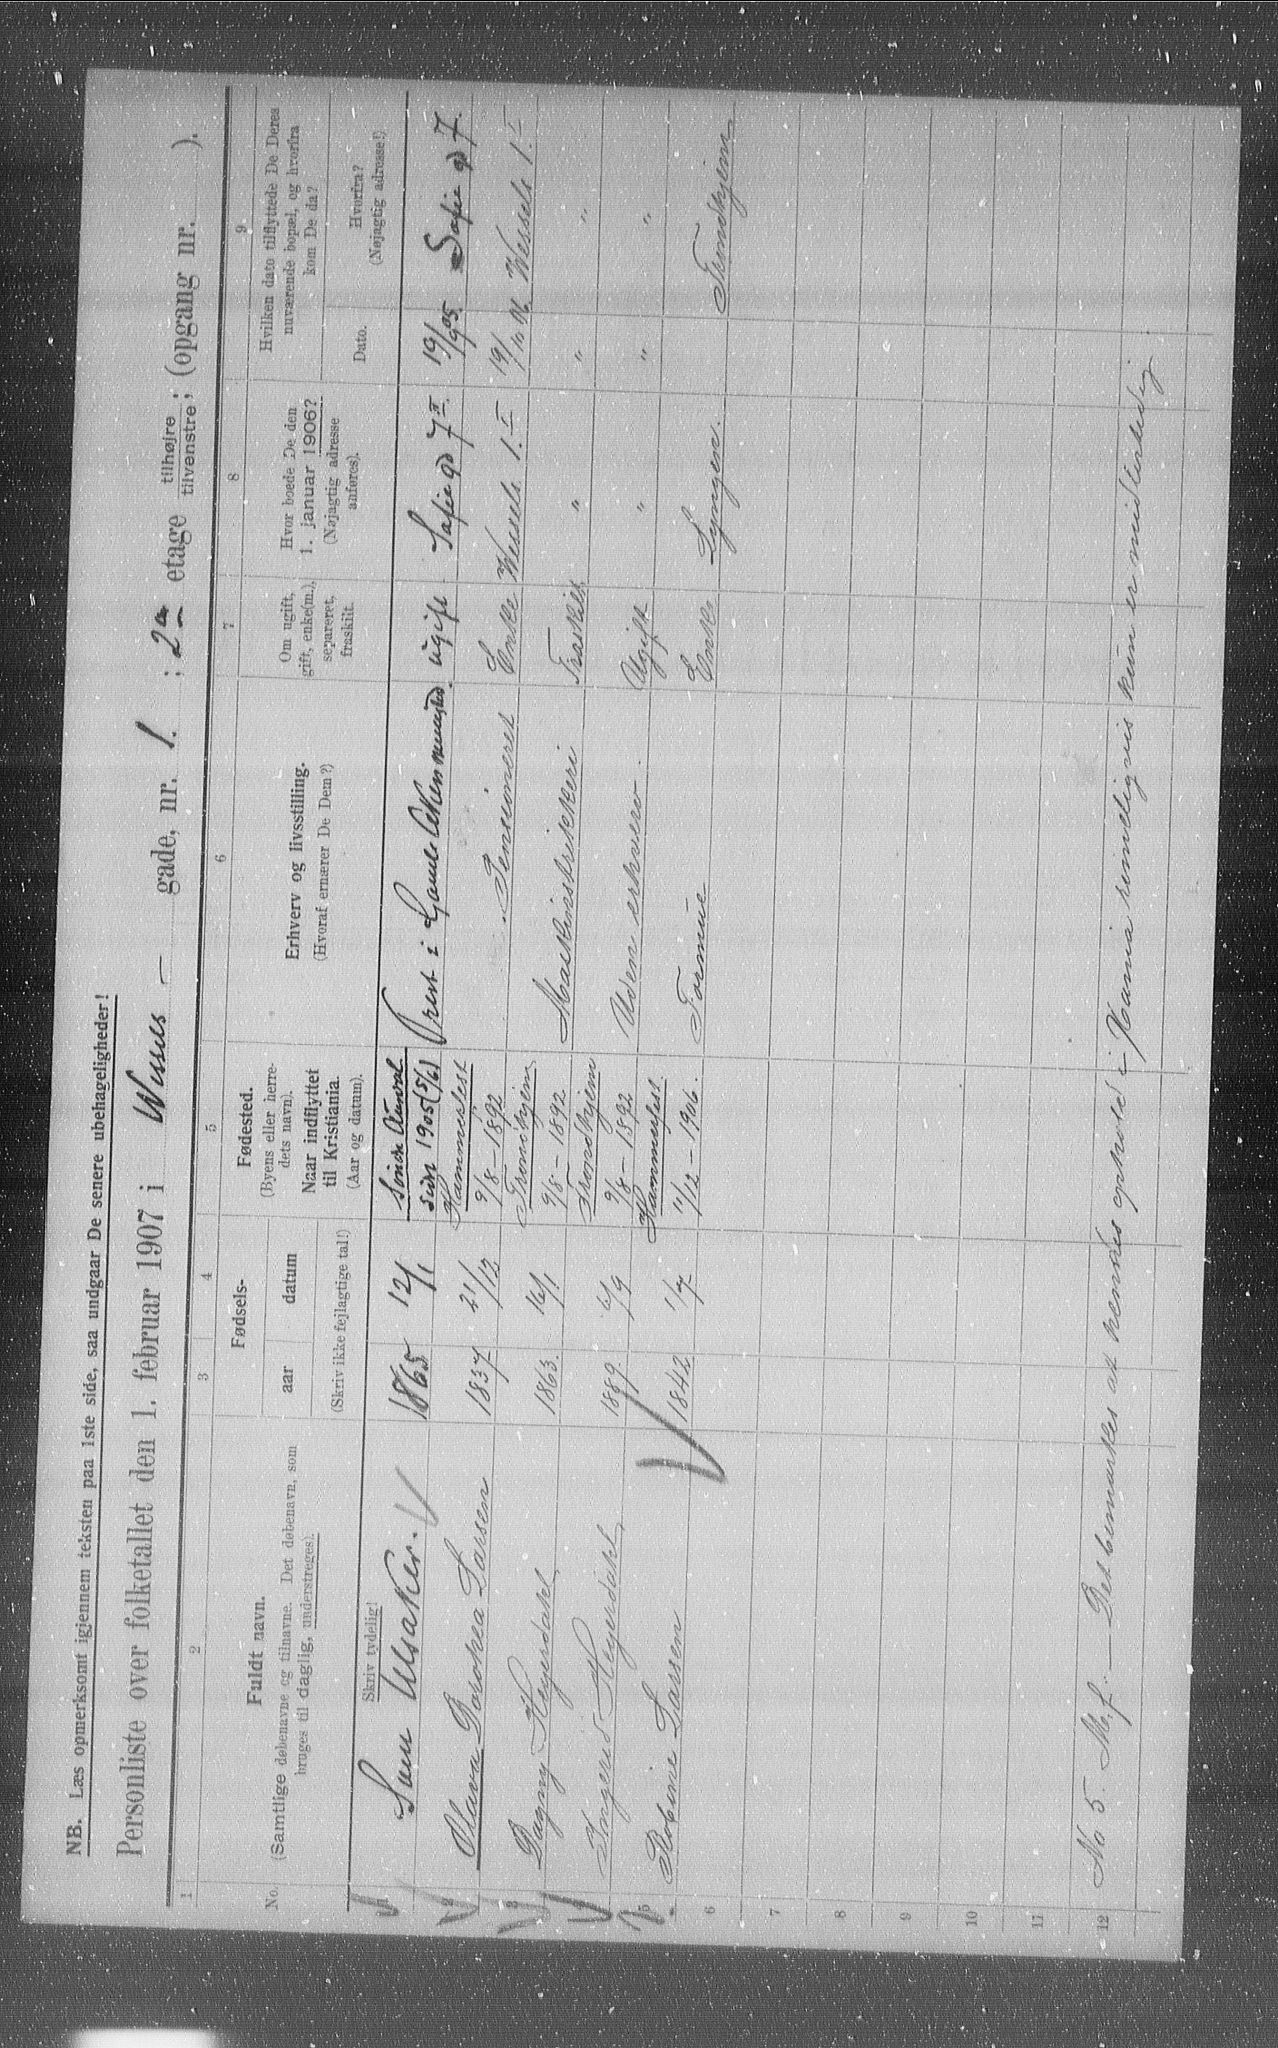 NB. Læs opmerksomt igjennem teksten paa 1ste side, saa undgaar De senere ubehageligheder!
Personliste over folketallet den 1. februar 1907 i Wessels — gade, nr. 1. ; 2den etage tilhøjre tilvenstre; (opgang nr. ).
1 2 3 4 5 6 7 8 9
No.
Fuldt navn.
(Samtlige døbenavne og tilnavne. Det døbenavn, som
bruges til daglig, understreges).
Skriv tydelig!
Fødsels-
aar datum
(Skriv ikke fejlagtige tal!)
Fødested.
(Byens eller herre-
dets navn).
Naar indflyttet
til Kristiania.
(Aar og datum).
Erhverv og livsstilling.
(Hvoraf ernærer De Dem?)
Om ugift,
gift, enke(m.),
separeret,
fraskilt.
Hvor boede De den
1. januar 1906?
(Nøjagtig adresse
anføres).
Hvilken dato tilflyttede De Deres
nuværende bopæl, og hvorfra
kom De da?
Dato.
Hvorfra?
(Nøjagtig adresse!)
1 Aasaker. 1865 12/1 Søndre Aurdal
siden 1905 (5/6) Prest i Gamle Akers ugift Sofiegd 7 II. 19/9 05. Sofie gd 7.
2 Olava Dorothea Larsen 1837 21/12 Hammerfest
9/8 - 1892 Pensioneret Enke Wessels 1. I 19/10 06 Wessels 1. I
3 Dagny Heyerdahl, 1863. 16/1 Trondhjem
9/8 - 1892 Maskinstrikkeri Fraskilt " " "
4 Ingerid Heyerdahl, 1889. 6/9 Trondhjem
9/8 - 1892 Uden erhverv. Ugift " " "
5 Robine Larsen 1842 1/7 Hammerfest.
11/12 - 1906. Formue Enke Lyngen. Trondhjem
6
7
8
9
10
11
12 No 5 M.f. — Det bemærkes at hendes ophold i Kania rimeligvis kun er midlertidig.